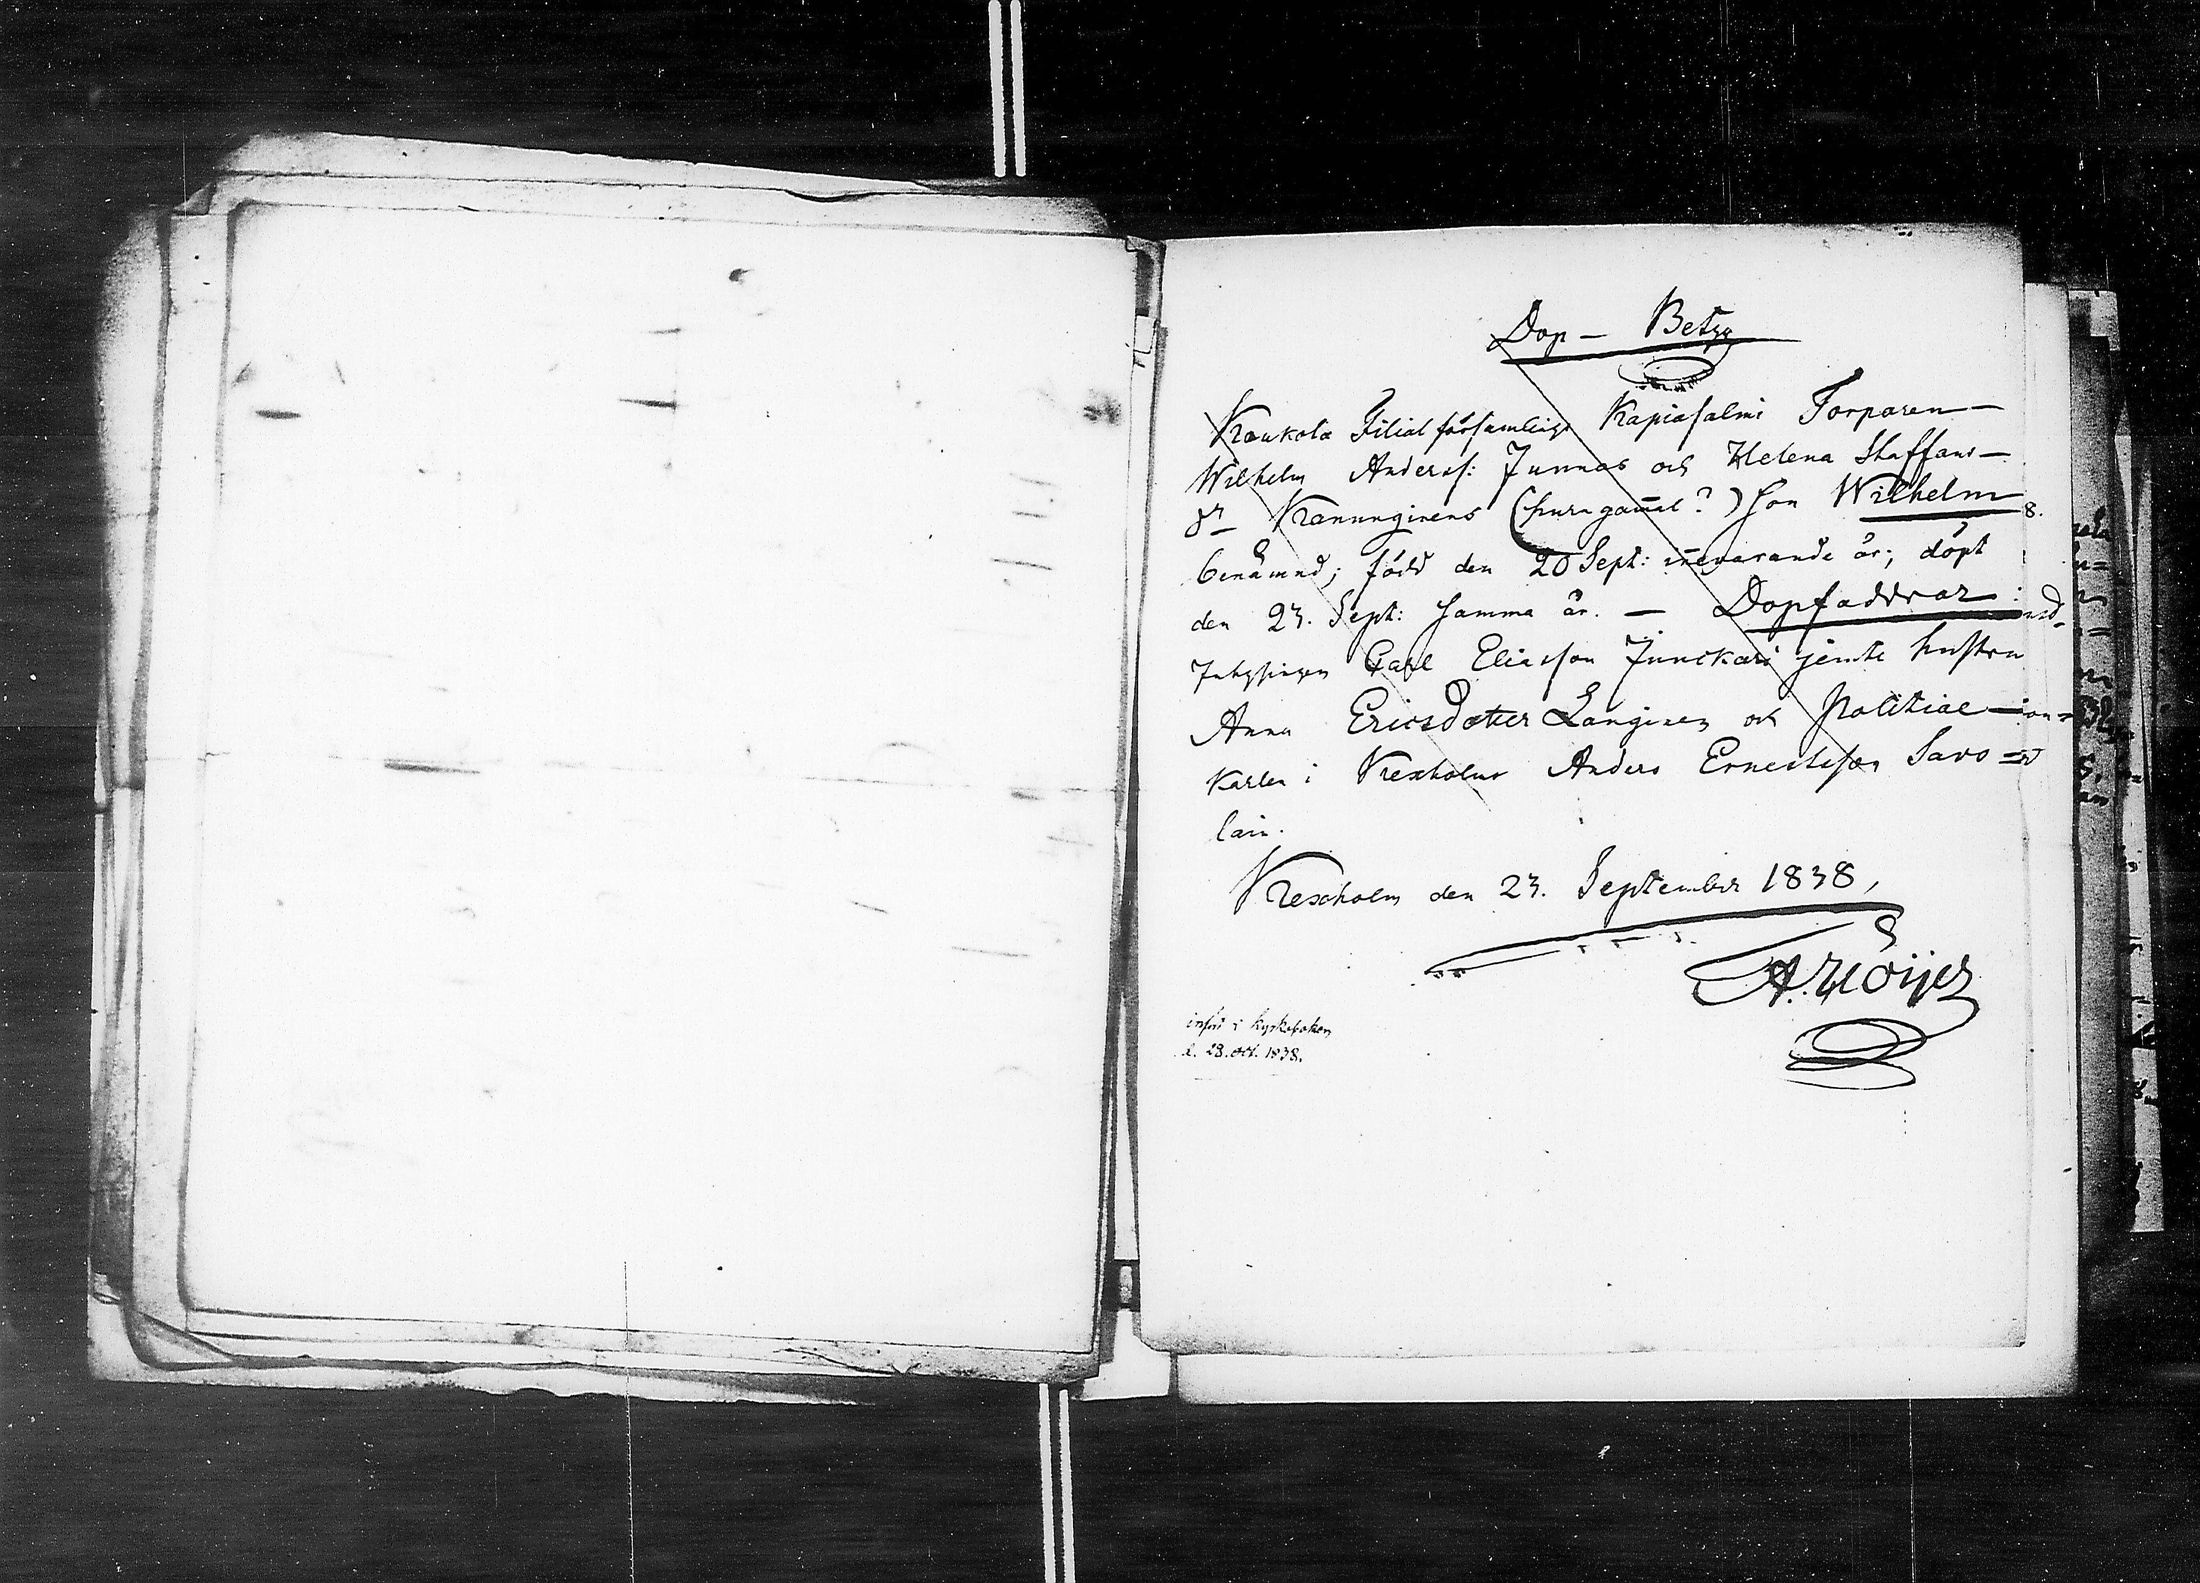 Dop – Betyg
Kaukola Filial församlings Kapiasalmi Torparen
Wilhelm Anderss: Junnas och Helena Staffans–
dr Kanunginens (huru gamal?) son Wilhelm
benämnd; född den 20 Sept: innevarande år; döpt
den 23. Sept: samma år. — Dopfaddrar:
Inhysingen Carl Eliasson Junckari jemte hustru
Anna Ericsdotter Langinen och Politiae–
Karlen i Kexholm Anders Ernestsson Savo=
lain.
Kexholm den 23. September 1838,
A. Höijer
införd i kyrkoboken
d. 28. oct. 1838.